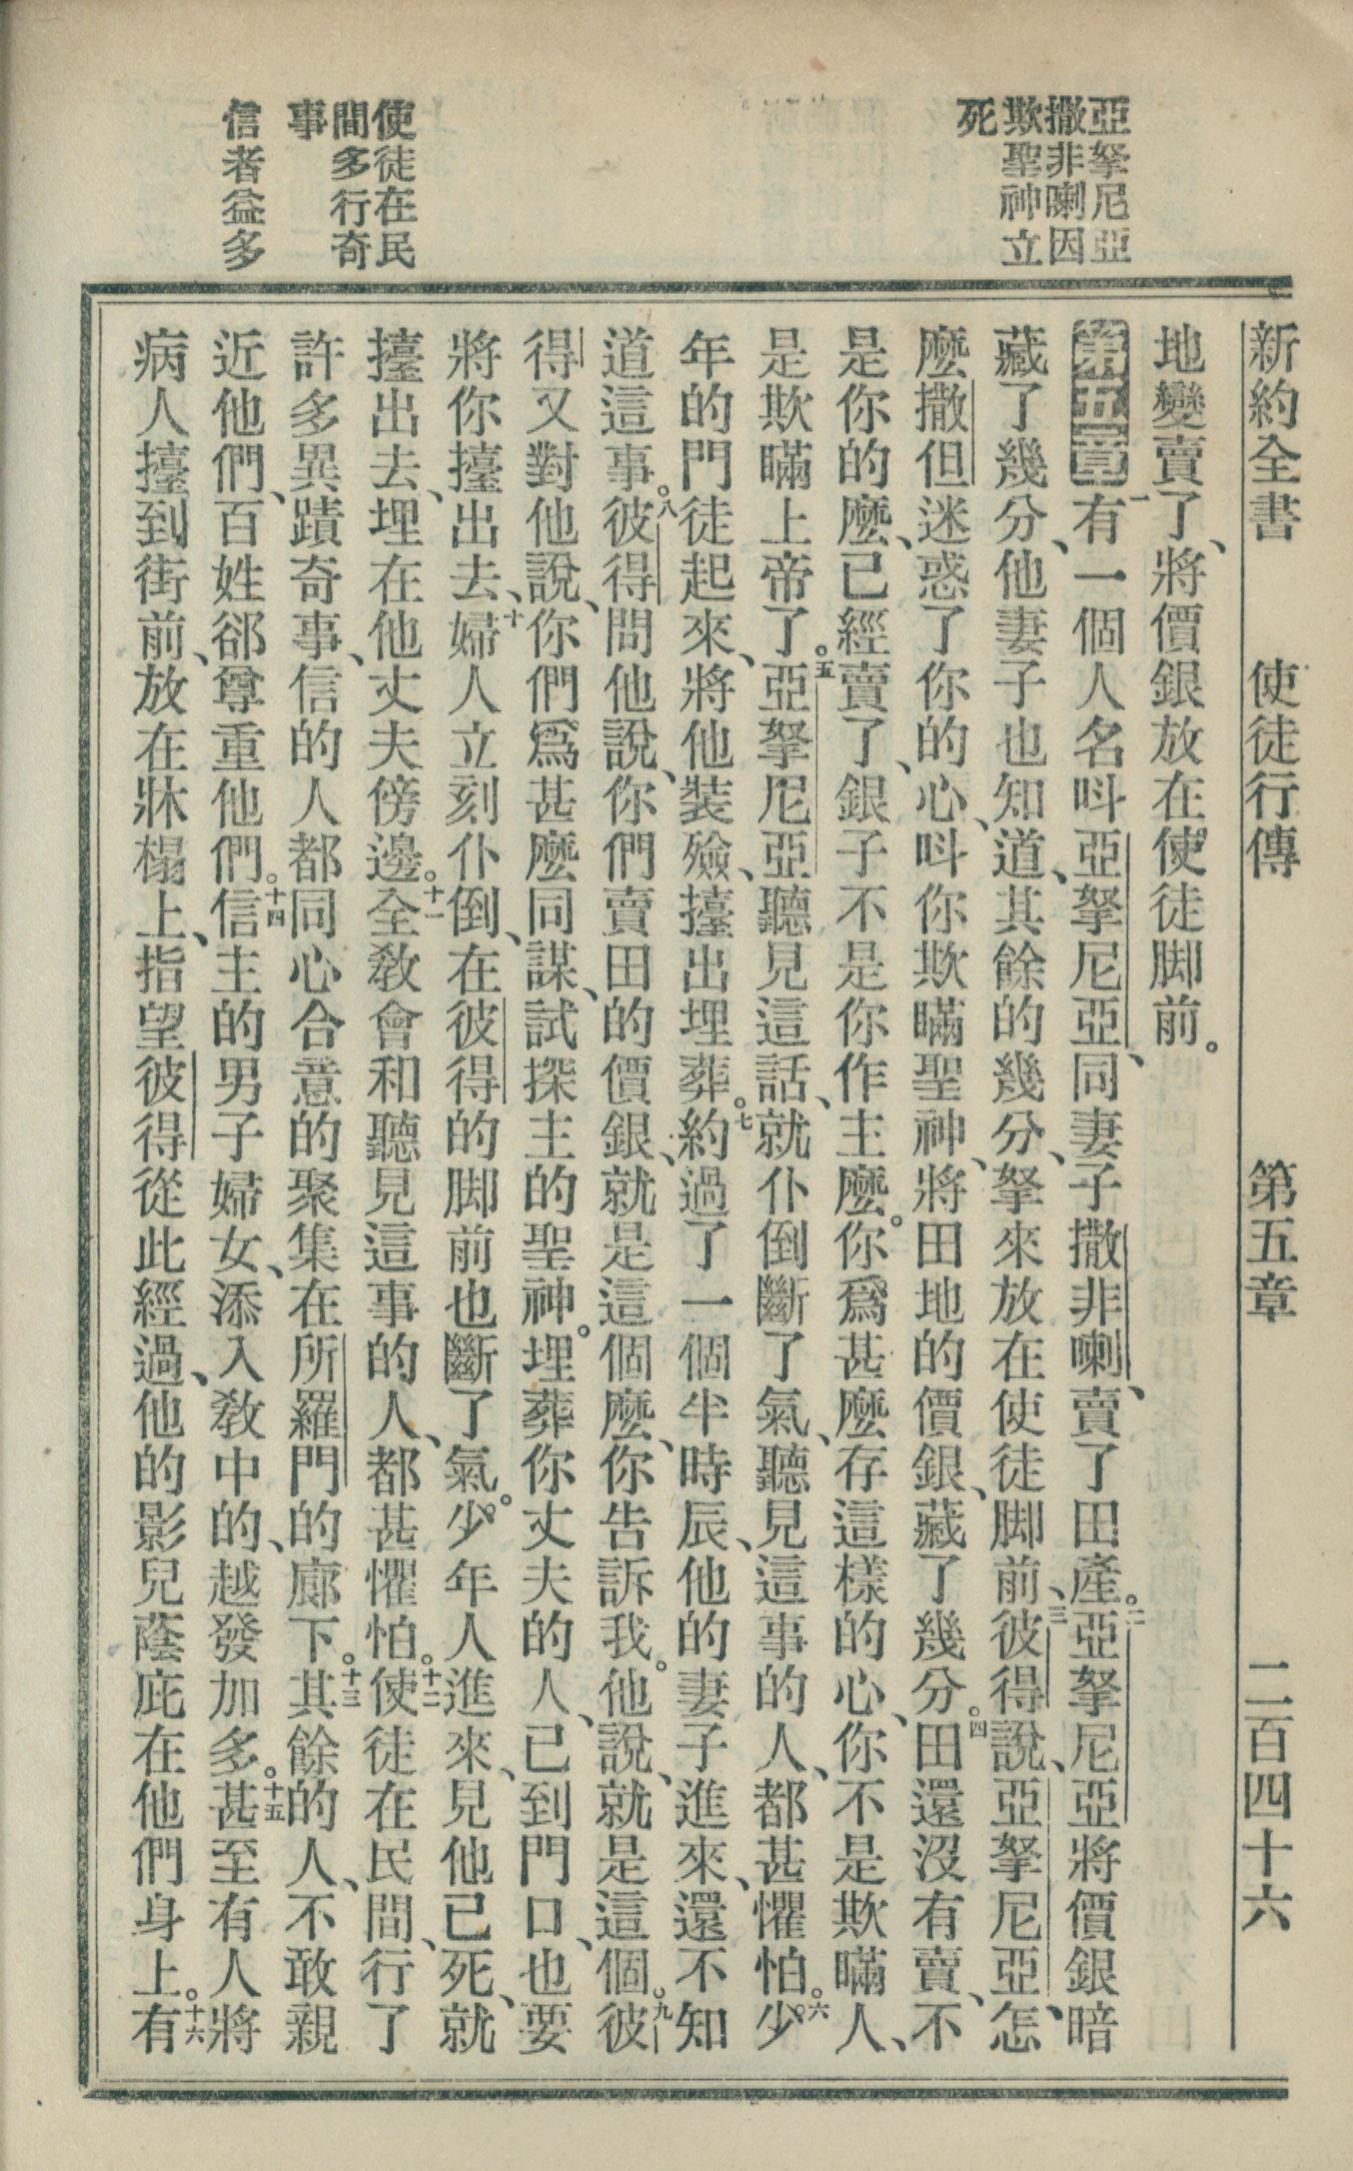 新約全書　使徒行傳　第五章　二百四十六
亞拏尼亞
撒非喇因
欺聖神立
死
使徒在民
間多行奇
事
信者益多
地變賣了、將價銀放在使徒脚前。
第五章一有一個人名呌亞拏尼亞、同妻子撒非喇、賣了田產。二亞拏尼亞將價銀暗
藏了幾分、他妻子也知道、其餘的幾分、拏來放在使徒脚前、三彼得說、亞拏尼亞、怎
麼撒但迷惑了你的心、呌你欺瞞聖神、將田地的價銀、藏了幾分。四田還沒有賣、不
是你的麼、已經賣了、銀子不是你作主麼。你爲甚麼存這樣的心、你不是欺瞞人、
是欺瞞上帝了。五亞拏尼亞聽見這話、就仆倒斷了氣、聽見這事的人、都甚懼怕。六少
年的門徒起來、將他裝殮、擡出埋葬。七約過了一個半時辰、他的妻子進來、還不知
道這事。八彼得問他說、你們賣田的價銀、就是這個麼、你告訴我。他說、就是這個。九彼
得又對他說、你們爲甚麼同謀、試探主的聖神。埋葬你丈夫的人、已到門口、也要
將你擡出去、十婦人立刻仆倒、在彼得的脚前也斷了氣。少年人進來、見他已死、就
擡出去、埋在他丈夫傍邊。十一全敎會和聽見這事的人、都甚懼怕。十二使徒在民間、行了
許多異蹟奇事、信的人都同心合意的聚集在所羅門的廊下。十三其餘的人、不敢親
近他們、百姓郤尊重他們。十四信主的男子婦女、添入敎中的、越發加多。十五甚至有人將
病人擡到街前、放在牀榻上、指望彼得從此經過、他的影兒蔭庇在他們身上。十六有